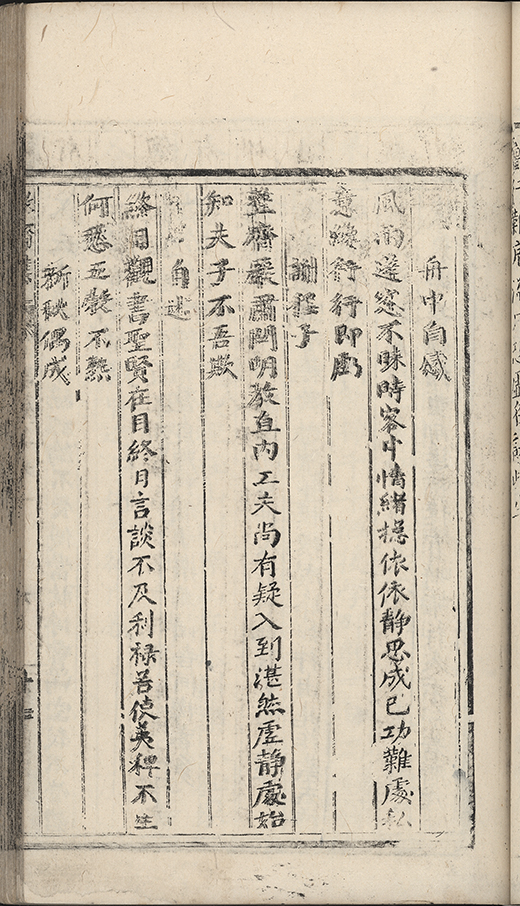 舟中自箴
風雨蓬窓不昧時客中情緒揔依依静思成已功難處私
意纔行行即虧
謝程子
整齊嚴肅開明教直内工夫尚有疑入到湛然虛静處始
知夫子不吾欺
自述
終日觀書聖賢在目終日言談不及利禄若使荑稗不生
何愁五穀不熟
新秋偶成